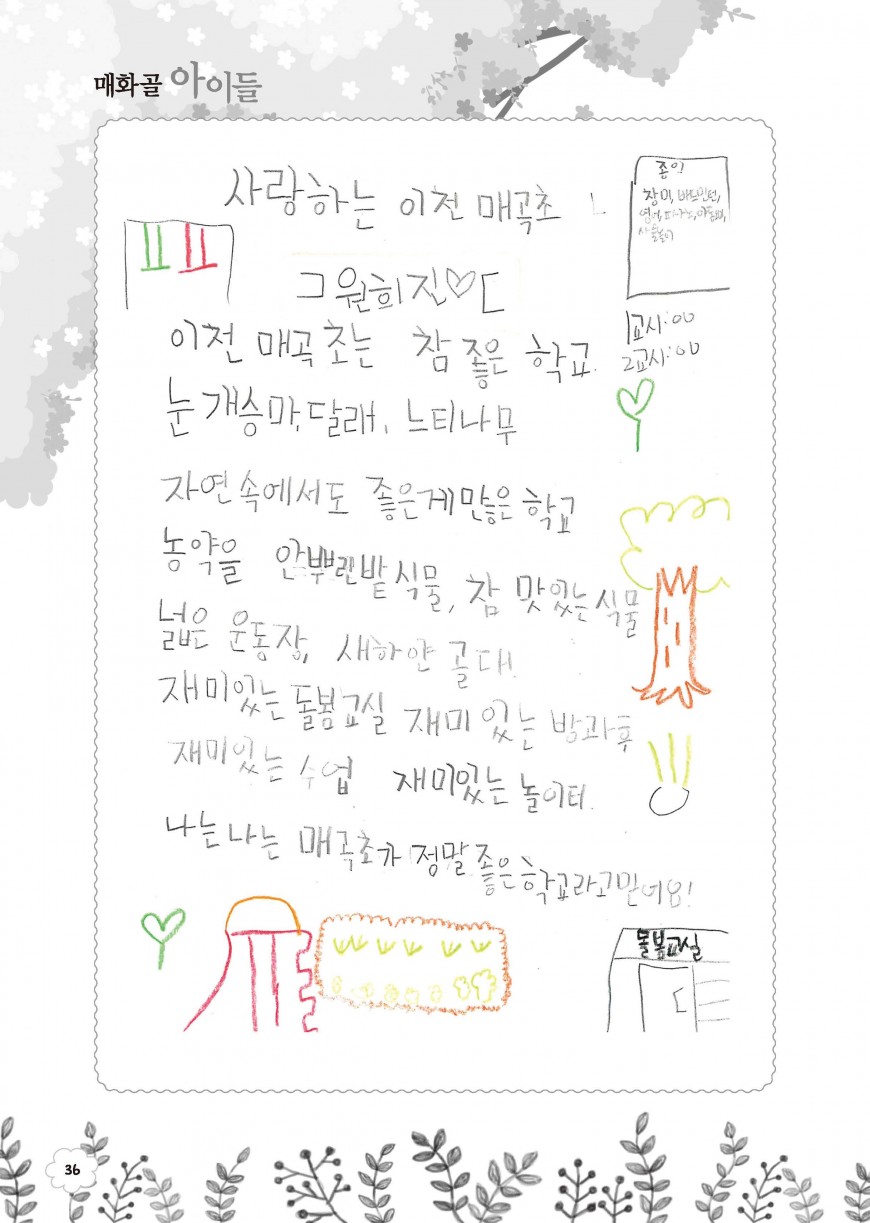 매화골 아이들
사랑하는 이천 매곡초
그 원희진♡
종이
창미, 배드민턴,
1교시:00
2교시:00
이천 매곡초는 참 좋은 학교.
눈개승마, 달래, 느티나무
자연속에서도 좋은게많은 학교
농약을 안뿌랜밭식물, 참 맛있는 식물
넓은 운동장, 새하얀 골대.
재미있는 돌봄교실 재미있는 방과후
재미있는 수업 재미있는 놀이터.
나는 나는 매곡초가 정말 좋은학교라고믿어요!
돌봄교실
36